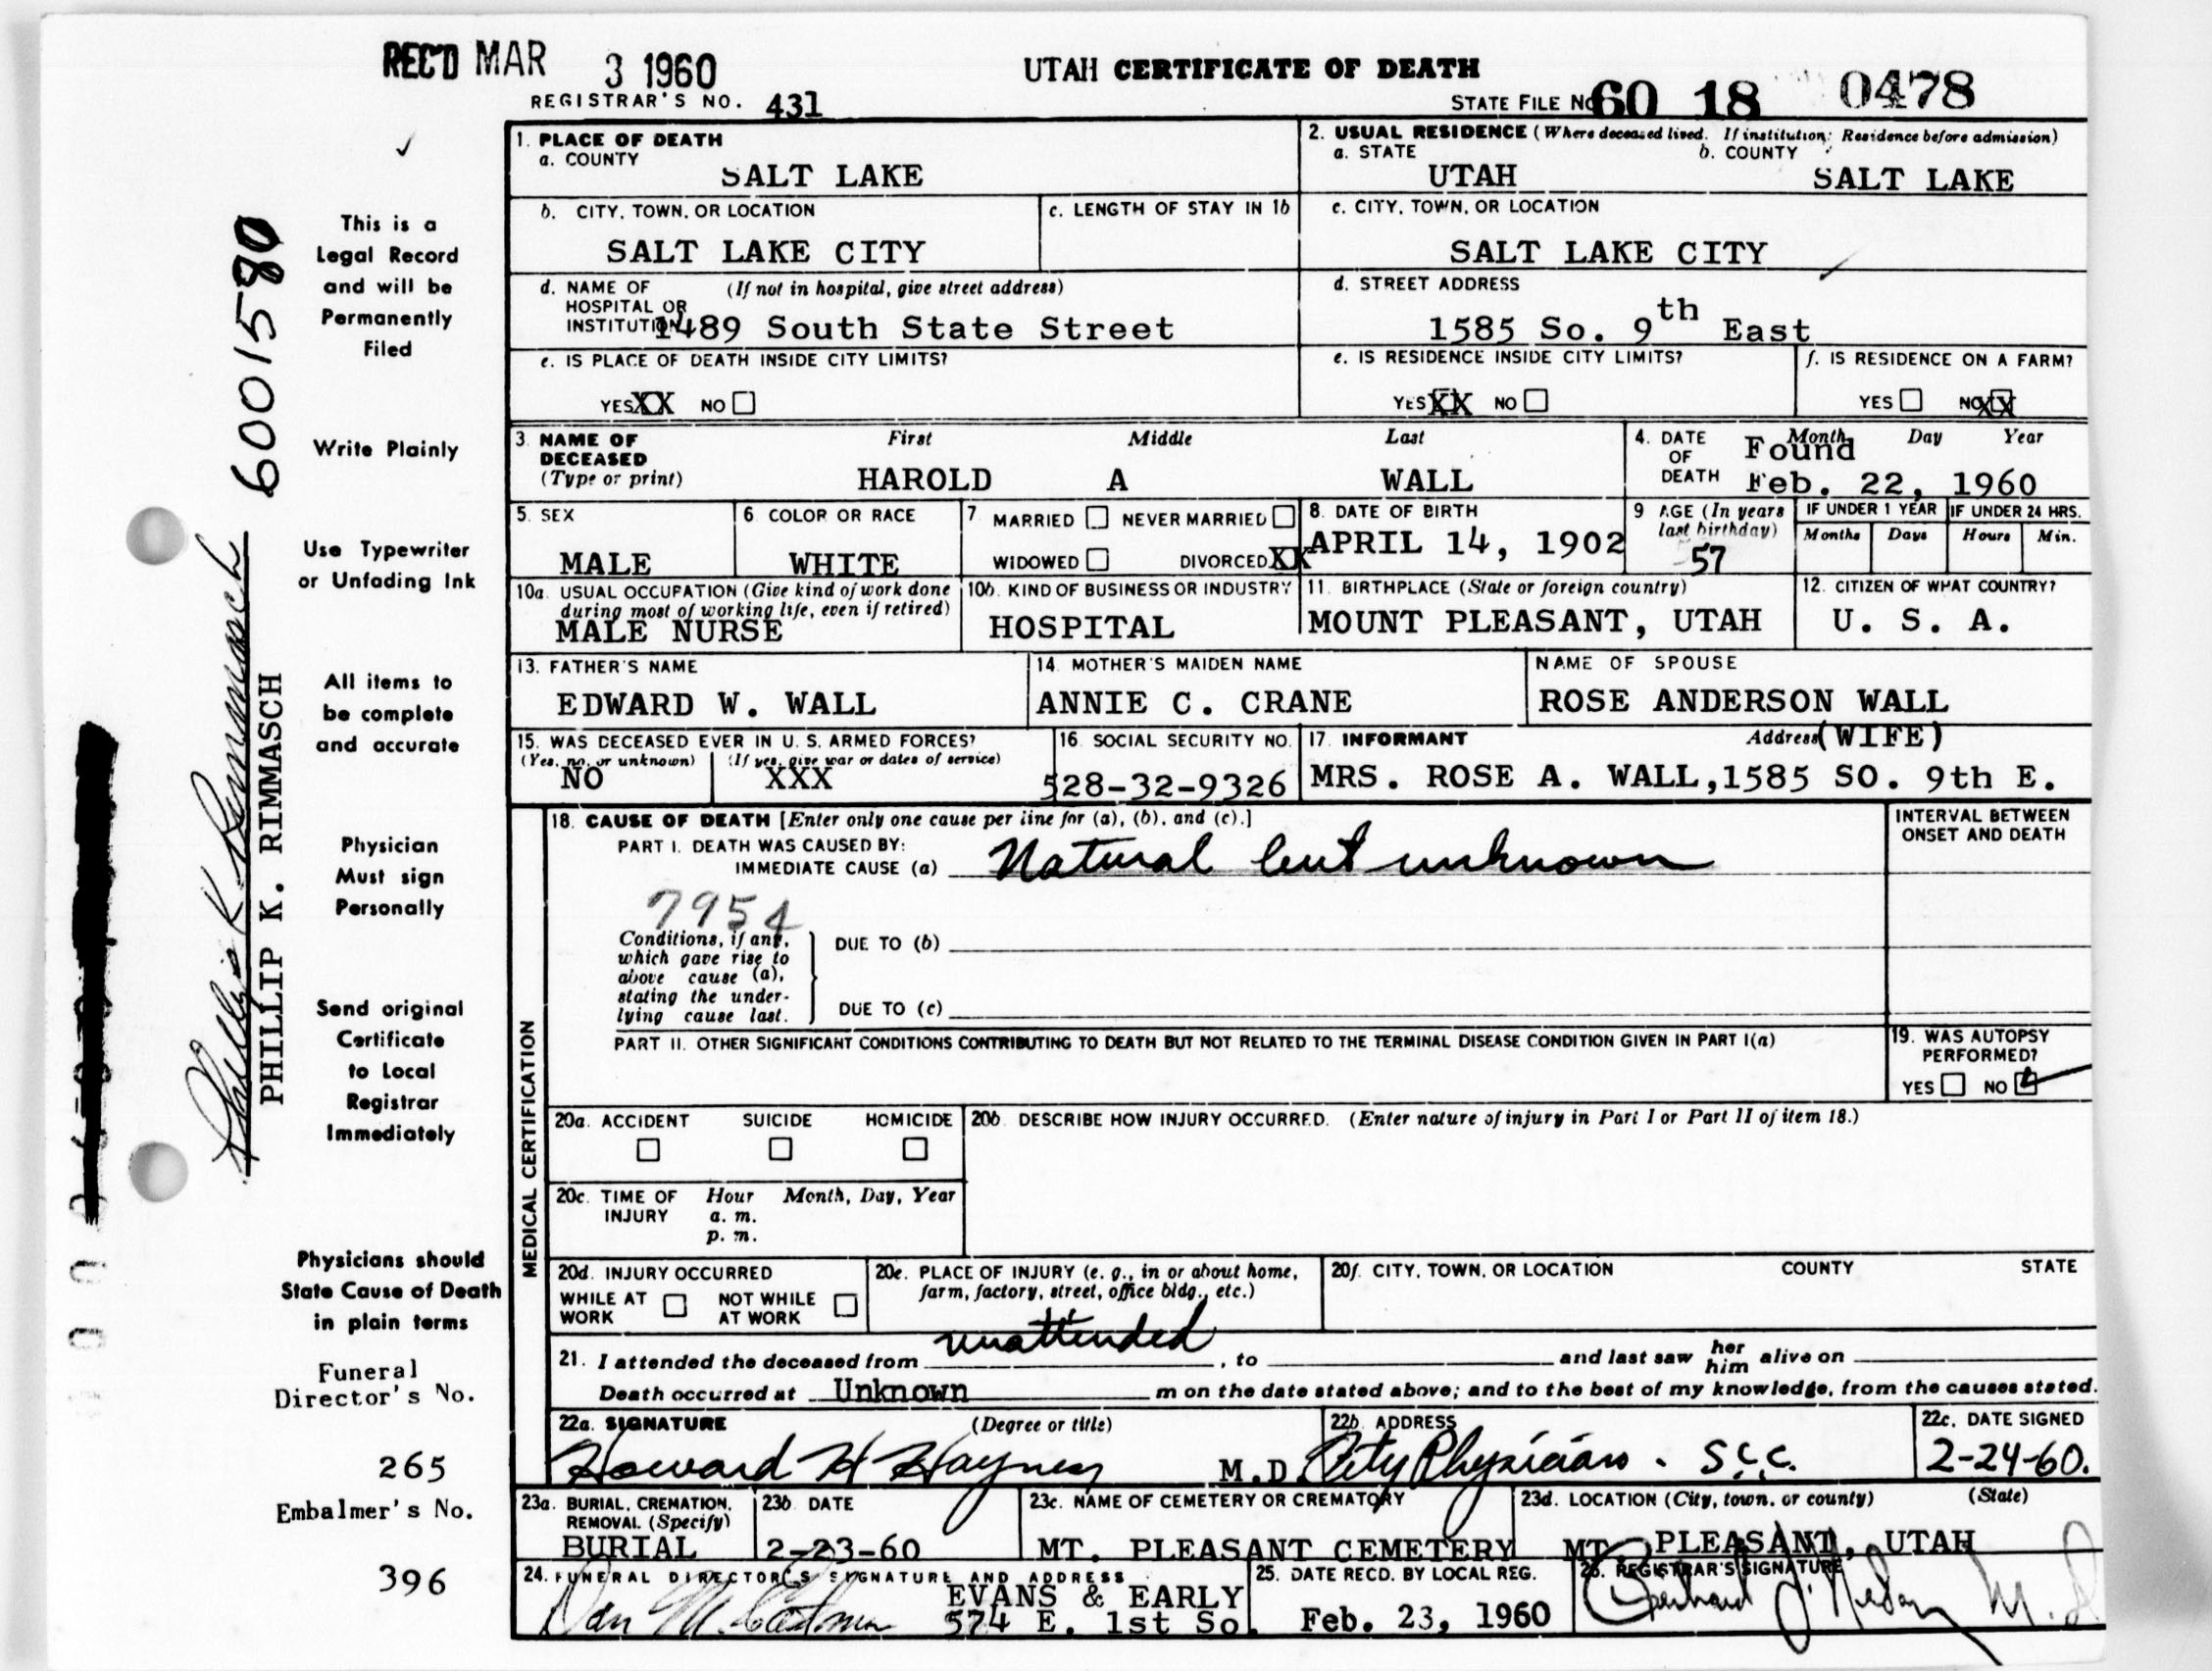 REC'D MAR 3 1960
UTAH CERTIFICATE OF DEATH
REGISTRAR'S NO. 431
STATE FILE No 60 18 0478
1. PLACE OF DEATH
a. COUNTY
SALT LAKE
2. USUAL RESIDENCE (Where deceased lived. If institution: Residence before admission)
a. STATE b. COUNTY
UTAH SALT LAKE
b. CITY, TOWN, OR LOCATION
SALT LAKE CITY
c. LENGTH OF STAY IN 1b
c. CITY, TOWN, OR LOCATION
SALT LAKE CITY
d. NAME OF (If not in hospital, give street address)
HOSPITAL OR
INSTITUTION 1489 South State Street
d. STREET ADDRESS
1585 So. 9th East
e. IS PLACE OF DEATH INSIDE CITY LIMITS?
YES XX NO
e. IS RESIDENCE INSIDE CITY LIMITS?
YES XX NO
f. IS RESIDENCE ON A FARM?
YES NO XX
3. NAME OF DECEASED
(Type or print)
First Middle Last
HAROLD A WALL
4. DATE OF DEATH
Month Day Year
Found
Feb. 22, 1960
5. SEX
MALE
6. COLOR OR RACE
WHITE
7 MARRIED NEVER MARRIED
WIDOWED DIVORCED XX
8. DATE OF BIRTH
APRIL 14, 1902
9 AGE (In years
last birthday)
57
IF UNDER 1 YEAR IF UNDER 24 HRS.
Months Days Hours Min.
10a. USUAL OCCUPATION (Give kind of work done
during most of working life, even if retired)
MALE NURSE
10b. KIND OF BUSINESS OR INDUSTRY
HOSPITAL
11. BIRTHPLACE (State or foreign country)
MOUNT PLEASANT, UTAH
12. CITIZEN OF WHAT COUNTRY?
U. S. A.
13. FATHER'S NAME
EDWARD W. WALL
14. MOTHER'S MAIDEN NAME
ANNIE C. CRANE
NAME OF SPOUSE
ROSE ANDERSON WALL
15. WAS DECEASED EVER IN U. S. ARMED FORCES?
(Yes, no, or unknown) (If yes, give war or dates of service)
NO XXX
16. SOCIAL SECURITY NO.
528-32-9326
17. INFORMANT Address (WIFE)
MRS. ROSE A. WALL, 1585 SO. 9th E.
MEDICAL CERTIFICATION
18. CAUSE OF DEATH [Enter only one cause per line for (a), (b), and (c).]
INTERVAL BETWEEN
ONSET AND DEATH
PART I. DEATH WAS CAUSED BY:
IMMEDIATE CAUSE (a) Natural but unknown
7954
Conditions, if any,
which gave rise to
above cause (a),
stating the under-
lying cause last.
DUE TO (b)
DUE TO (c)
PART II. OTHER SIGNIFICANT CONDITIONS CONTRIBUTING TO DEATH BUT NOT RELATED TO THE TERMINAL DISEASE CONDITION GIVEN IN PART I(a)
19. WAS AUTOPSY
PERFORMED?
YES NO
20a. ACCIDENT SUICIDE HOMICIDE
20b. DESCRIBE HOW INJURY OCCURRED. (Enter nature of injury in Part I or Part II of item 18.)
20c. TIME OF INJURY
Hour Month, Day, Year
a. m.
p. m.
20d. INJURY OCCURRED
WHILE AT WORK NOT WHILE AT WORK
20e. PLACE OF INJURY (e. g., in or about home,
farm, factory, street, office bldg., etc.)
20f. CITY, TOWN, OR LOCATION COUNTY STATE
21. I attended the deceased from unattended, to and last saw her him alive on
Death occurred at Unknown m on the date stated above; and to the best of my knowledge, from the causes stated.
22a. SIGNATURE (Degree or title)
Howard H Haynes M.D.
22b. ADDRESS
City Physician. S.L.C.
22c. DATE SIGNED
2-24-60.
23a. BURIAL, CREMATION,
REMOVAL (Specify)
BURIAL
23b. DATE
2-23-60
23c. NAME OF CEMETERY OR CREMATORY
MT. PLEASANT CEMETERY
23d. LOCATION (City, town, or county) (State)
MT. PLEASANT, UTAH
24. FUNERAL DIRECTOR'S SIGNATURE AND ADDRESS
EVANS & EARLY
574 E. 1st So.
25. DATE RECD. BY LOCAL REG.
Feb. 23, 1960
26. REGISTRAR'S SIGNATURE
M.D
This is a
Legal Record
and will be
Permanently
Filed
Write Plainly
Use Typewriter
or Unfading Ink
All items to
be complete
and accurate
Physician
Must sign
Personally
Send original
Certificate
to Local
Registrar
Immediately
Physicians should
State Cause of Death
in plain terms
Funeral
Director's No.
265
Embalmer's No.
396
6001580
Phillip K Rimmasch
PHILLIP K. RIMMASCH